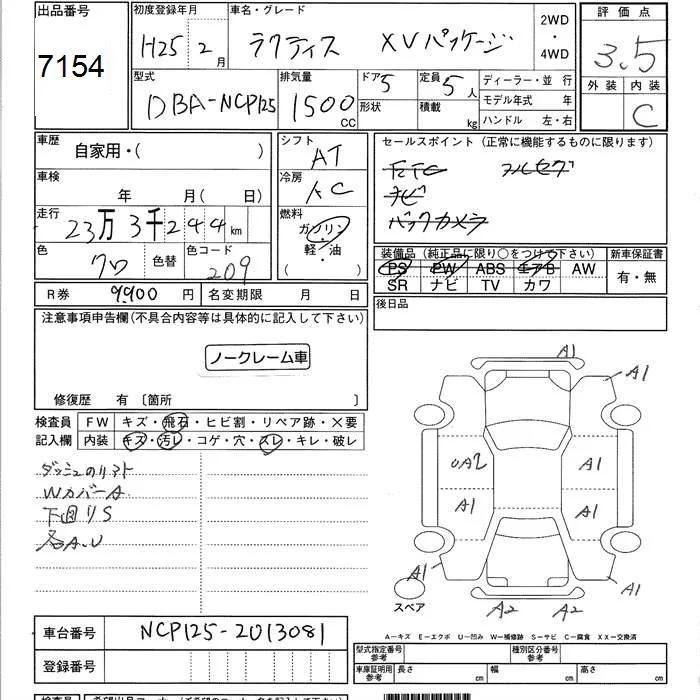 出品番号 7154
初度登録年月 H25 2月
車名・グレード ラクティス XVパッケージ
2WD・4WD
評価点 3.5
外装 内装 C
型式 DBA-NCP125
排気量 1500 CC
ドア 5 形状
定員 5人 積載 kg
ディーラー・並 行
モデル年式 年
ハンドル 左・右
車歴 自家用・( )
シフト AT
セールスポイント (正常に機能するものに限ります)
ETC フルセグ
ナビ
バックカメラ
車検 年 月( 日)
冷房 AC
走行 23万3千244km
燃料 ガソリン・軽・油 ( )
色 クロ 色替 色コード 209
装備品 (純正品に限り○をつけて下さい) 新車保証書
PS PW ABS エアB AW 有・無
SR ナビ TV カワ
R券 9,900円 名変期限 月 日
後日品
注意事項申告欄(不具合内容等は具体的に記入して下さい)
ノークレーム車
修復歴 有〔箇所 〕
検査員記入欄
FW キズ・飛石・ヒビ割・リペア跡・X要
内装 キズ・汚レ・コゲ・穴・スレ・キレ・破レ
Wカバー A
下回りS
各A.U
A1
A1
UA2 A1
A1 A1
A1 A1
A2 A2
スペア
A-キズ E-エクボ U-凹み W-補修跡 S-サビ C-腐食 XX-交換済
車台番号 NCP125-2013081
登録番号
型式指定番号 参考 種別区分番号 参考
車庫証明用 参考 長さ cm 幅 cm 高さ cm